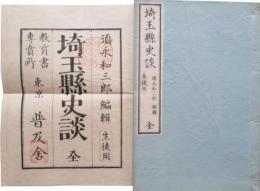 須永和三郎編輯
生徒用
埼玉縣史談
全
教育書
専賣所
東京 普及舎
埼玉縣史談
須永和三郎編輯
生徒用
全